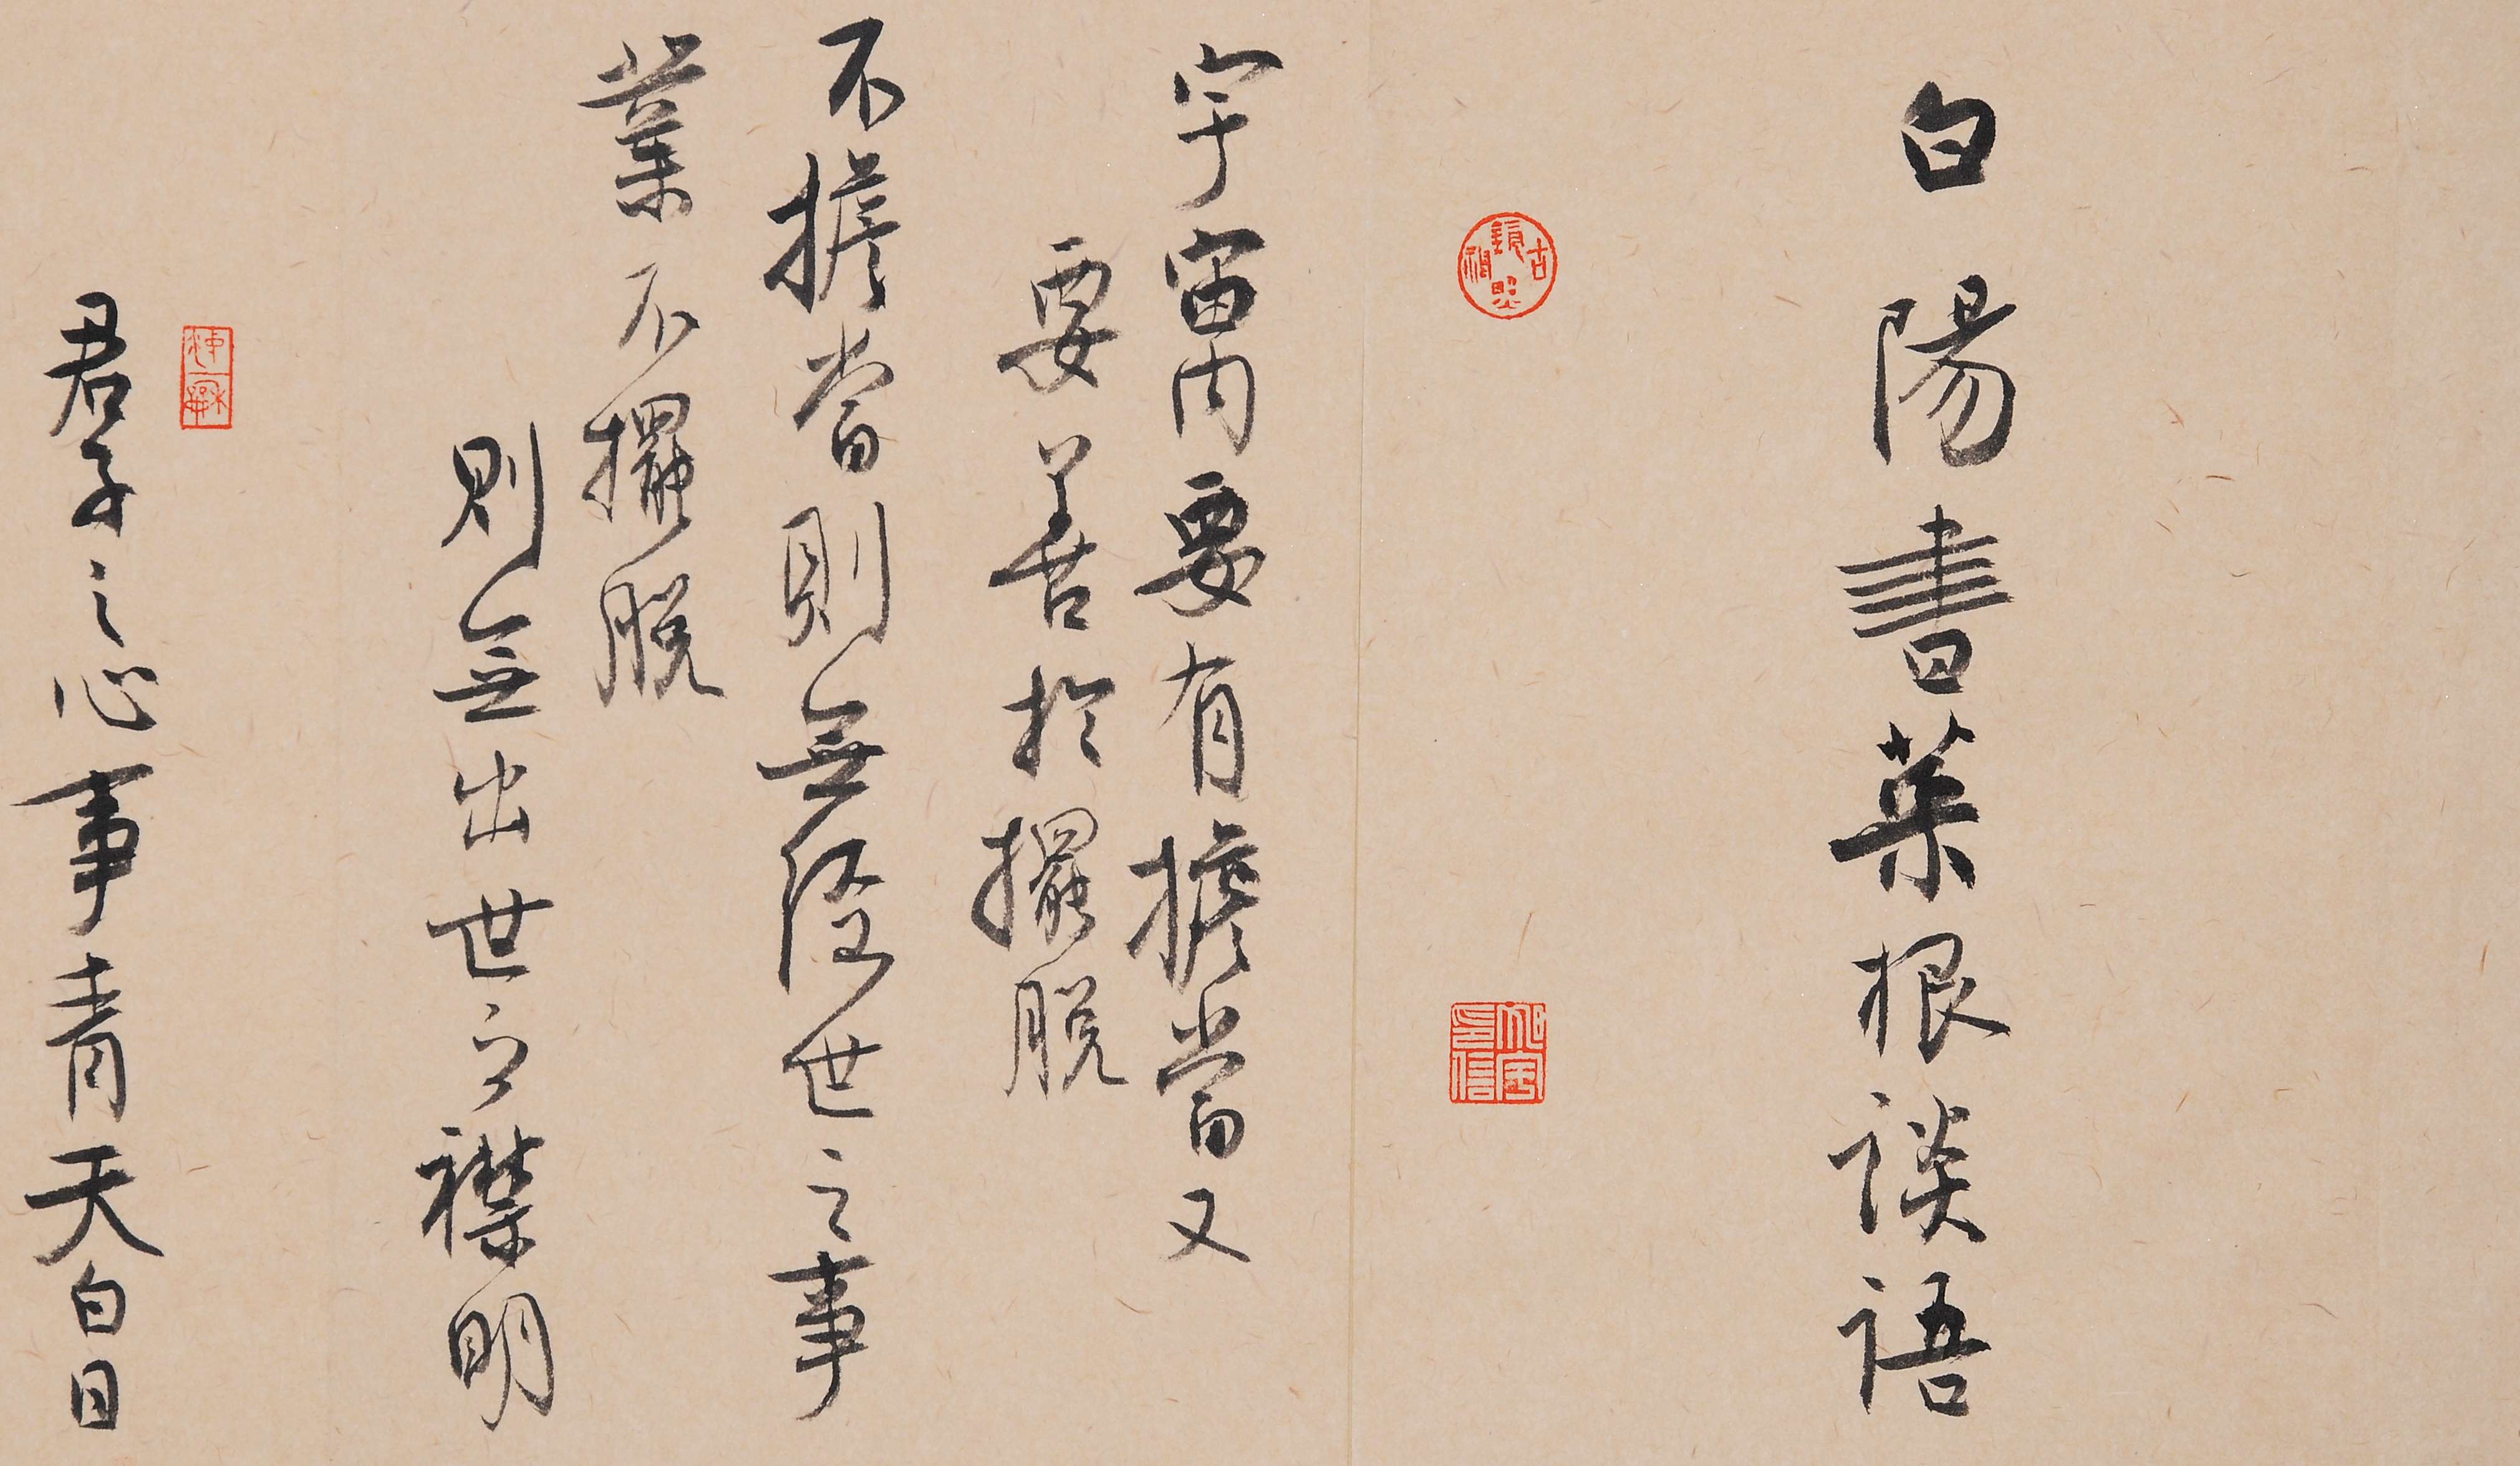 白陽書菜根談語
宇宙內要有擔當又
要善於擺脫
不擔當則無經世之事
業不擺脫
則無出世之襟明
君子之心事青天白日